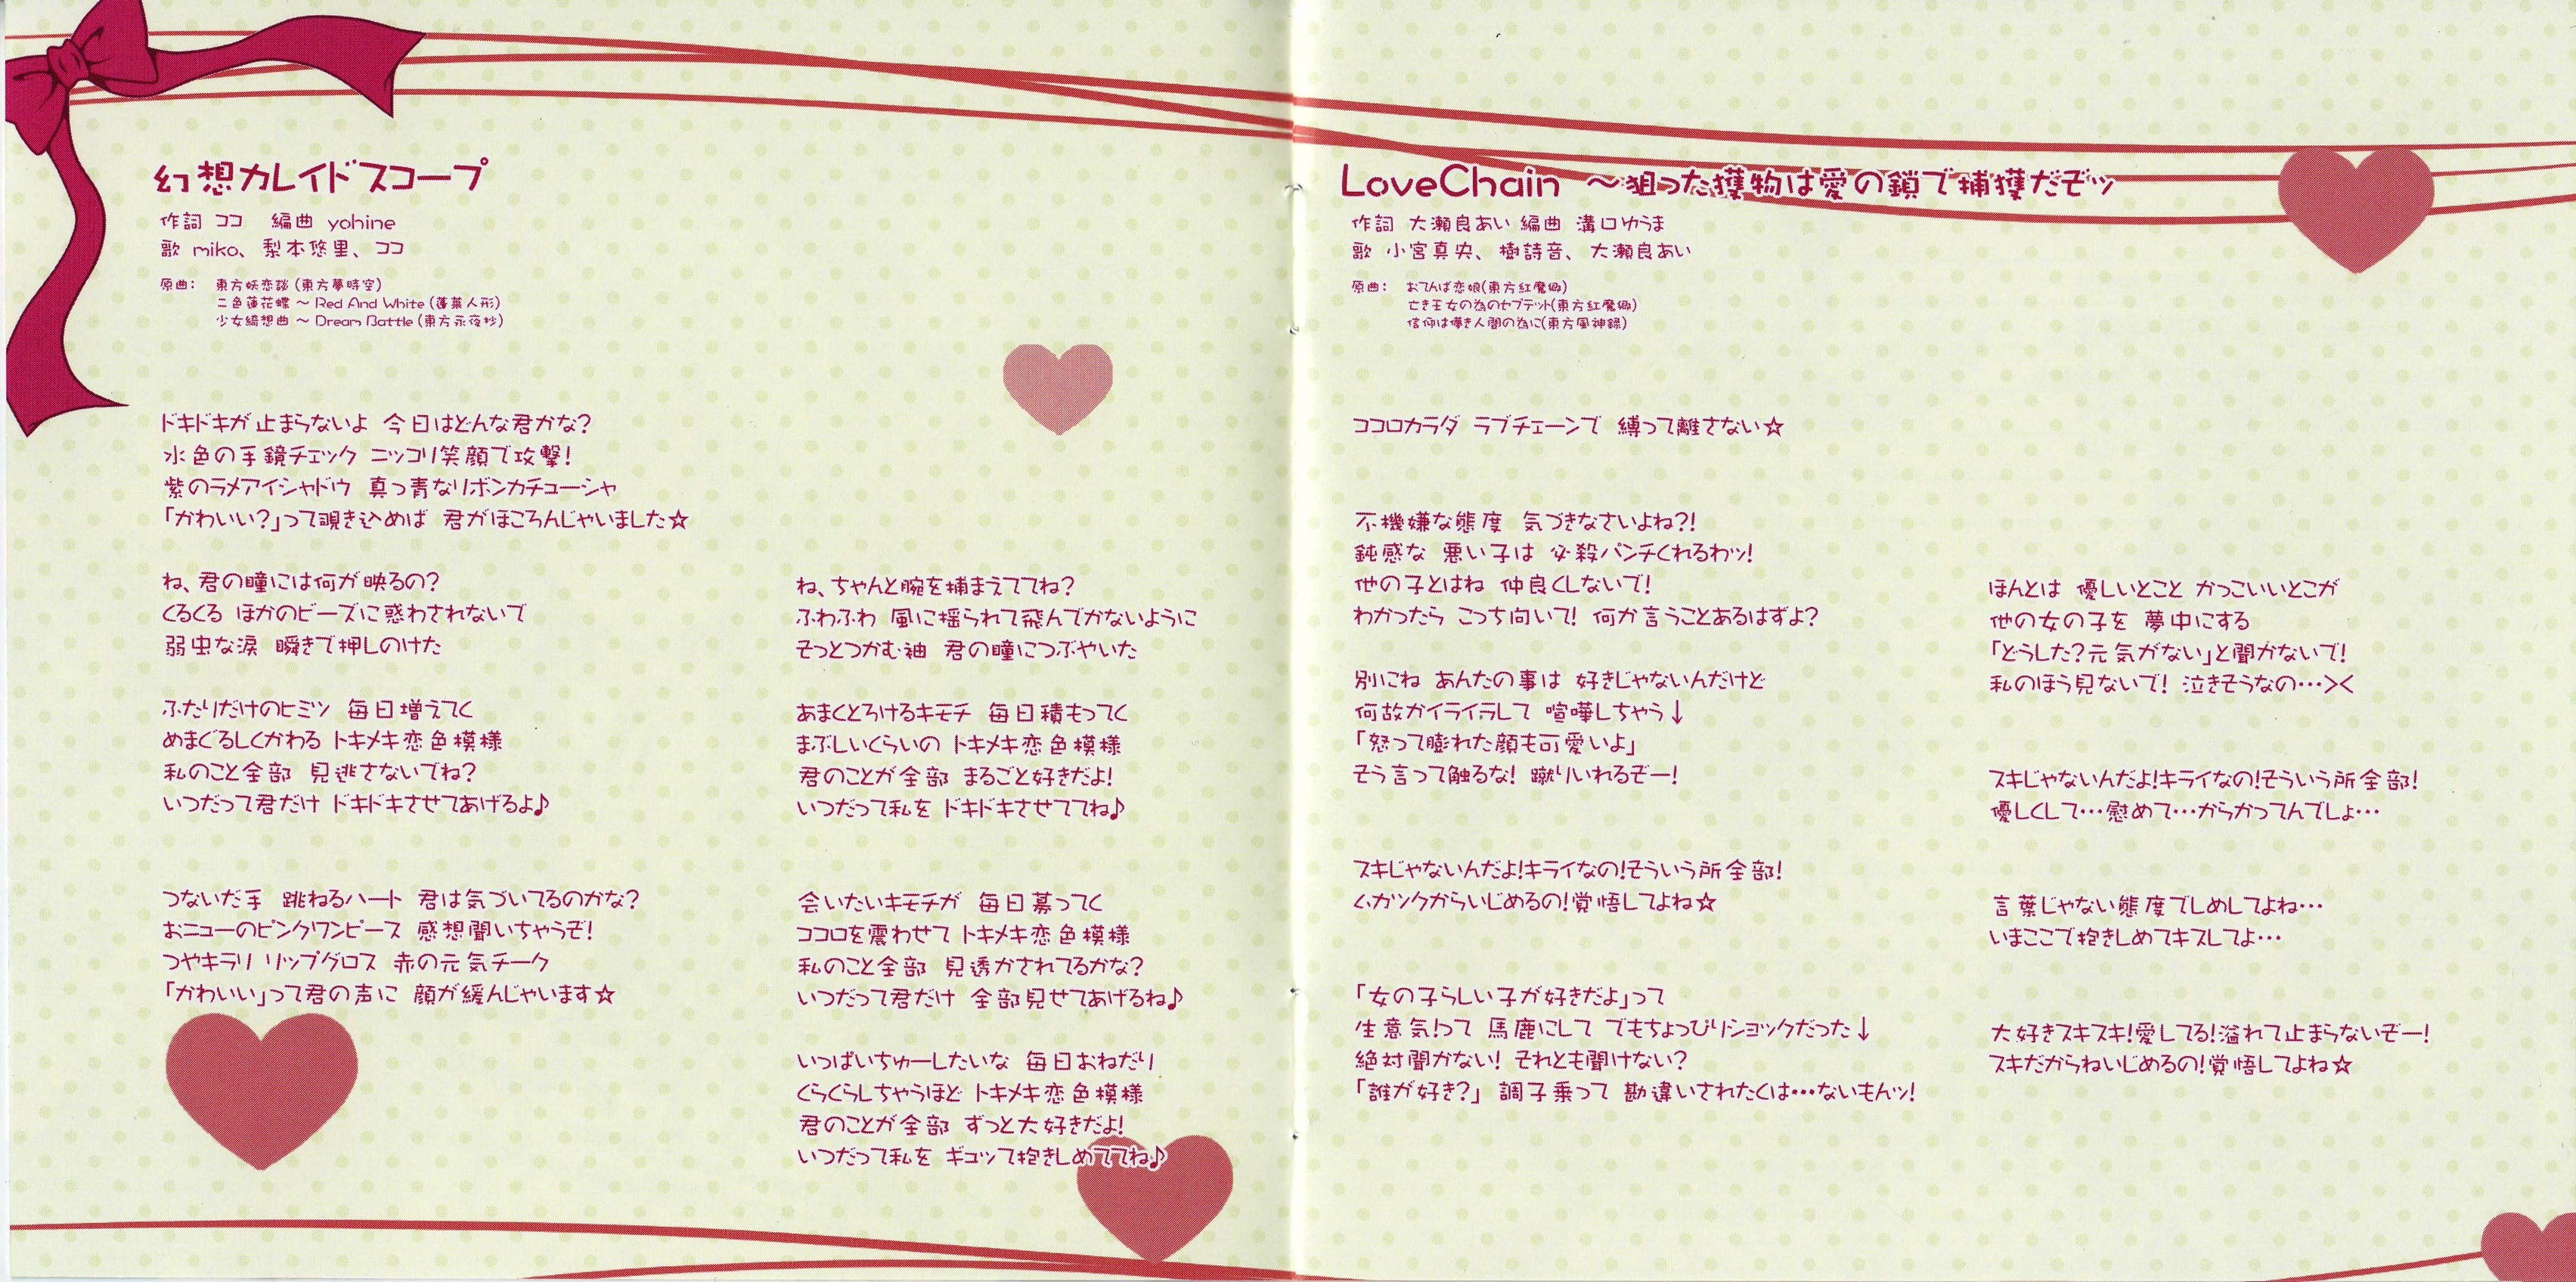 幻想カレイドスコープ
作詞 ココ 編曲 yohine
歌 miko、梨本悠里、ココ
原曲: 東方妖恋談 (東方夢時空)
二色蓮花蝶 ～ Red And White (蓬莱人形)
少女綺想曲 ～ Dream Battle (東方永夜抄)
ドキドキが止まらないよ 今日はどんな君かな?
水色の手鏡チェック ニッコリ笑顔で攻撃!
紫のラメアイシャドウ 真っ青なリボンカチューシャ
「かわいい?」って覗き込めば 君がほころんじゃいました☆
ね、君の瞳には何が映るの?
くるくる ほかのビーズに惑わされないで
弱虫な涙 瞬きで押しのけた
ふたりだけのヒミツ 毎日増えてく
めまぐるしくかわる トキメキ恋色模様
私のこと全部 見逃さないでね?
いつだって君だけ ドキドキさせてあげるよ♪
つないだ手 跳ねるハート 君は気づいてるのかな?
おニューのピンクワンピース 感想聞いちゃうぞ!
つやキラリ リップグロス 赤の元気チーク
「かわいい」って君の声に 顔が緩んじゃいます☆
ね、ちゃんと腕を捕まえててね?
ふわふわ 風に揺られて飛んでかないように
そっとつかむ袖 君の瞳につぶやいた
あまくとろけるキモチ 毎日積もってく
まぶしいくらいの トキメキ恋色模様
君のことが全部 まるごと好きだよ!
いつだって私を ドキドキさせててね♪
会いたいキモチが 毎日募ってく
ココロを震わせて トキメキ恋色模様
私のこと全部 見透かされてるかな?
いつだって君だけ 全部見せてあげるね♪
いっぱいちゅーしたいな 毎日おねだり
くらくらしちゃうほど トキメキ恋色模様
君のことが全部 ずっと大好きだよ!
いつだって私を ギュッて抱きしめててね♪
LoveChain ～狙った獲物は愛の鎖で捕獲だぞッ
作詞 大瀬良あい 編曲 溝口ゆうま
歌 小宮真央、樹詩音、大瀬良あい
原曲: おてんば恋娘(東方紅魔郷)
亡き王女の為のセプテット(東方紅魔郷)
信仰は儚き人間の為に(東方風神録)
ココロカラダ ラブチェーンで 縛って離さない☆
不機嫌な態度 気づきなさいよね?!
鈍感な 悪い子は 必殺パンチくれるわッ!
他の子とはね 仲良くしないで!
わかったら こっち向いて! 何か言うことあるはずよ?
別にね あんたの事は 好きじゃないんだけど
何故かイライラして 喧嘩しちゃう↓
「怒って膨れた顔も可愛いよ」
そう言って触るな! 蹴りいれるぞー!
スキじゃないんだよ!キライなの!そういう所全部!
ムカツクからいじめるの!覚悟してよね☆
「女の子らしい子が好きだよ」って
生意気!って 馬鹿にして でもちょっぴりショックだった↓
絶対聞かない! それとも聞けない?
「誰が好き?」 調子乗って 勘違いされたくは…ないもんッ!
ほんとは 優しいとこと かっこいいとこが
他の女の子を 夢中にする
「どうした?元気がない」と聞かないで!
私のほう見ないで! 泣きそうなの…><
スキじゃないんだよ!キライなの!そういう所全部!
優しくして…慰めて…からかってんでしょ…
言葉じゃない態度でしめしてよね…
いまここで抱きしめてキスしてよ…
大好きスキスキ!愛してる!溢れて止まらないぞー!
スキだからねいじめるの!覚悟してよね☆